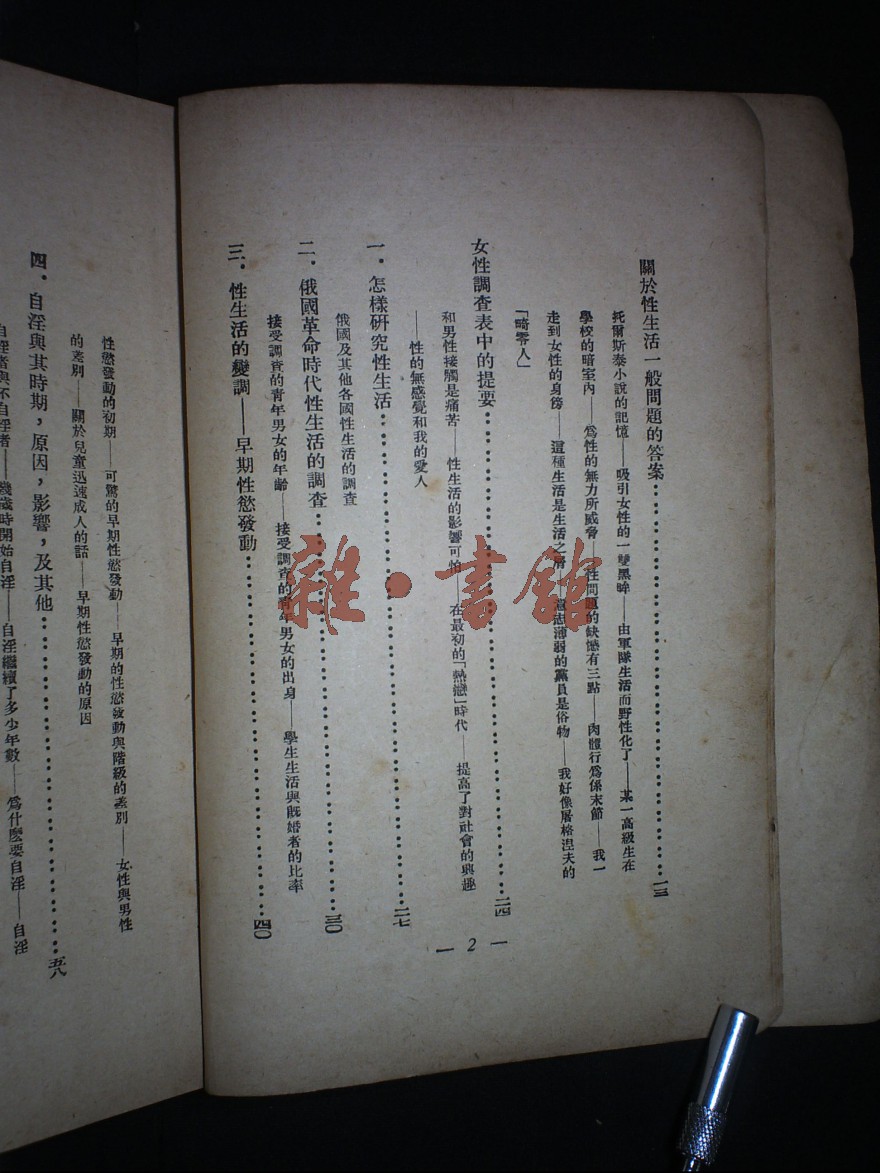 關於性生活一般問題的答案…………一三
托爾斯泰小說的記憶——吸引女性的一雙黑眸——由軍隊生活而野性化了——某一高級生在
學校的暗室內——爲性的無力所威脅——性問題的缺憾有三點——肉體行爲係末節——我一
走到女性的身傍——這種生活是生活之屑——意志薄弱的黨員是俗物——我好像屠格涅夫的
「畸零人」
女性調查表中的提要…………二四
和男性接觸是痛苦——性生活的影響可怕——在最初的「熱戀」時代——提高了對社會的興趣
——性的無感覺和我的愛人
一．怎樣研究性生活…………二七
俄國及其他各國性生活的調查
二．俄國革命時代性生活的調查…………三〇
接受調查的青年男女的年齡——接受調查的青年男女的出身——學生生活與既婚者的比率
三．性生活的變調——早期性慾發動…………四〇
— 2 —
性慾發動的初期——可驚的早期性慾發動——早期的性慾發動與階級的差別——女性與男性
的差別——關於兒童迅速成人的話——早期性慾發動的原因
四．自淫與其時期，原因，影響，及其他…………五八
自淫者與不自淫者——幾歲時開始自淫——自淫繼續了多少年數——爲什麽要自淫——自淫
雜·書館